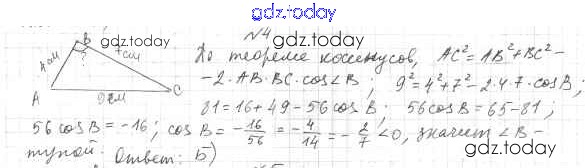 gdz.today
№4
B
gdz.today
gdz.today
4 см
?
7 см
A
C
9 см
По теореме косинусов, AC² = AB² + BC² –
– 2·AB·BC·cos∠B, 9² = 4² + 7² – 2·4·7·cosB;
81 = 16 + 49 – 56 cosB; 56 cosB = 65 – 81;
56 cosB = –16; cosB = –16/56 = –4/14 = –2/7 < 0, значит ∠B –
тупой. Ответ: Б)
gdz.today
gdz.today